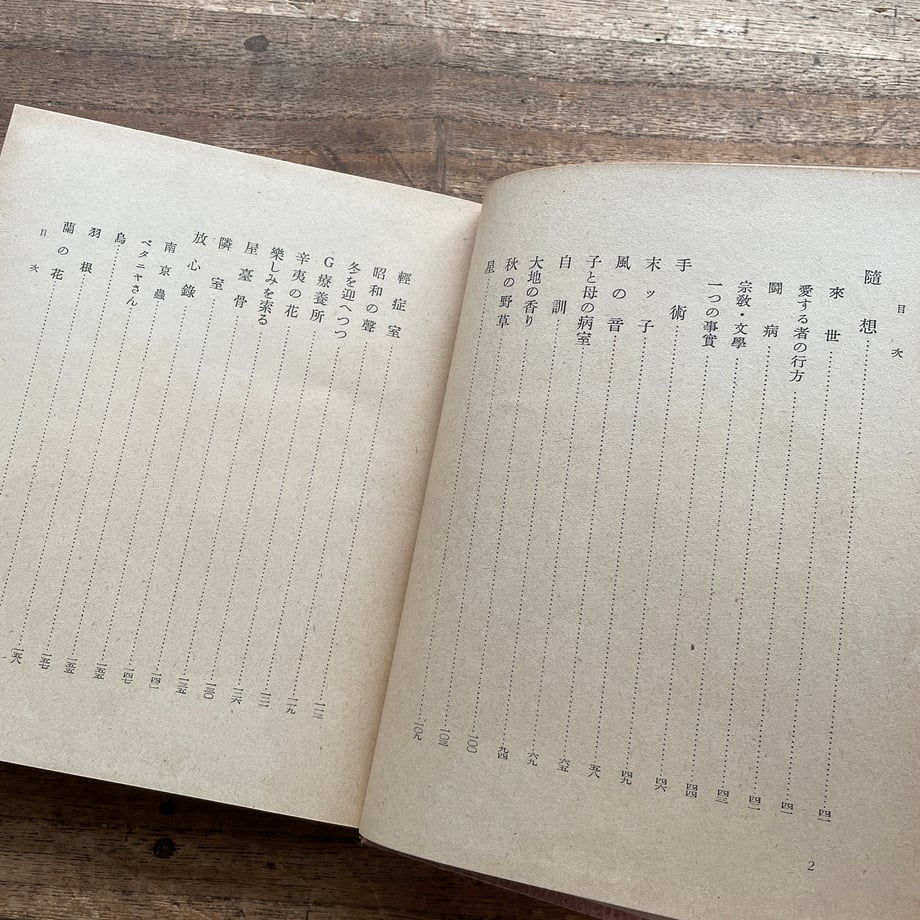 目次
隨想……四一
來世……四一
愛する者の行方……四二
闘病……四三
宗教・文學……四四
一つの事實……四六
手術……四九
末ッ子……五八
風の音……六五
子と母の病室……六九
自訓……九四
大地の香り……一〇〇
秋の野草……一〇三
星……一〇九
2
輕症室
昭和の聲
冬を迎へつつ
G療養所
辛夷の花
樂しみを索る
屋臺骨
隣室
放心錄
南京蟲
ベタニヤさん
烏
羽根
蘭の花
目次
一一三
一一九
一二一
一二六
一三〇
一三五
一四一
一四七
一五五
一五五
一五七
一五八